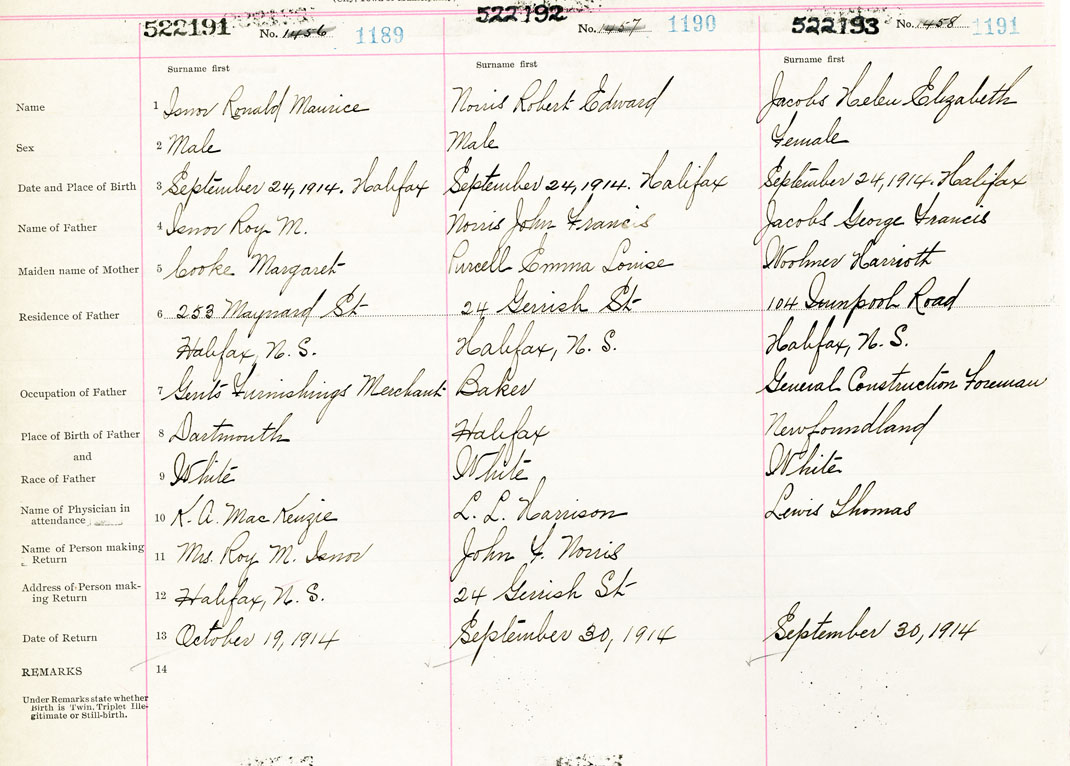 522191 No. 1456 1189 522192 No. 1457 1190 522193 No. 1458 1191
Surname first Surname first Surname first
Name 1 Isnor Ronald Maurice Norris Robert Edward Jacobs Helen Elizabeth
Sex 2 Male Male Female
Date and Place of Birth 3 September 24, 1914. Halifax September 24, 1914. Halifax September 24, 1914. Halifax
Name of Father 4 Isnor Roy M. Norris John Francis Jacobs George Francis
Maiden name of Mother 5 Cooke Margaret Purcell Emma Louise Woolner Harrioth
Residence of Father 6 253 Maynard St 24 Gerrish St 104 Quinpooh Road
Halifax, N. S. Halifax, N. S. Halifax, N. S.
Occupation of Father 7 Gents Furnishings Merchant Baker General Construction Foreman
Place of Birth of Father 8 Dartmouth Halifax Newfoundland
and
Race of Father 9 White White White
Name of Physician in
attendance 10 K. A. MacKenzie L. L. Harrison Lewis Thomas
Name of Person making
Return 11 Mrs. Roy M. Isnor John F. Norris
Address of Person mak-
ing Return 12 Halifax, N. S. 24 Gerrish St
Date of Return 13 October 19, 1914 September 30, 1914 September 30, 1914
REMARKS 14
Under Remarks state whether
Birth is Twin, Triplet Ille-
gitimate or Still-birth.